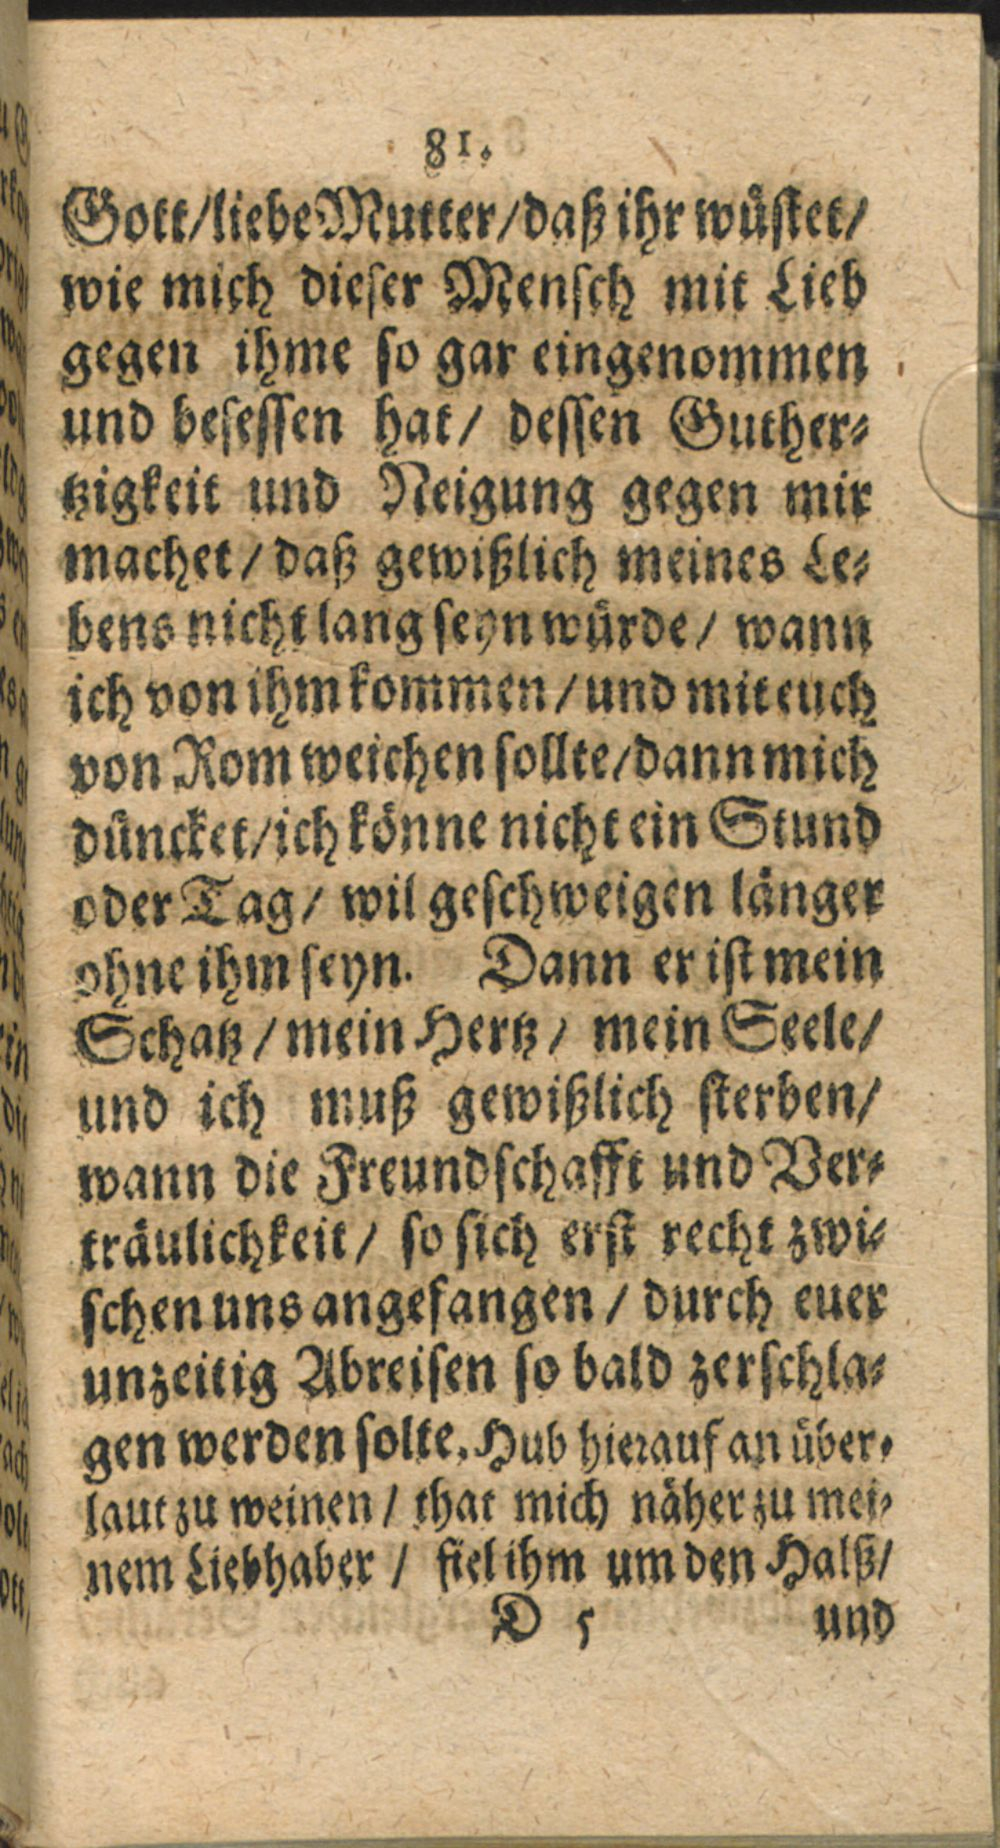 81.
Gott/liebe Mutter/daß ihr wüstet/
wie mich dieser Mensch mit Lieb
gegen ihme so gar eingenommen
und besessen hat/ dessen Guther-
tzigkeit und Neigung gegen mir
machet/ daß gewißlich meines Le-
bens nicht lang seyn würde/ wann
ich von ihm kommen/und mit euch
von Rom weichen sollte/dann mich
düncket/ich könne nicht ein Stund
oder Tag/ wil geschweigen länger
ohne ihm seyn. Dann er ist mein
Schatz/mein Hertz/ mein Seele/
und ich muß gewißlich sterben/
wann die Freundschafft und Ver-
träulichkeit/ so sich erst recht zwi-
schen uns angefangen/ durch euer
unzeitig Abreisen so bald zerschla-
gen werden solte. Hub hierauf an über-
laut zu weinen/ that mich näher zu mei-
nem Liebhaber/ fiel ihm um den Halß/
D 5 und